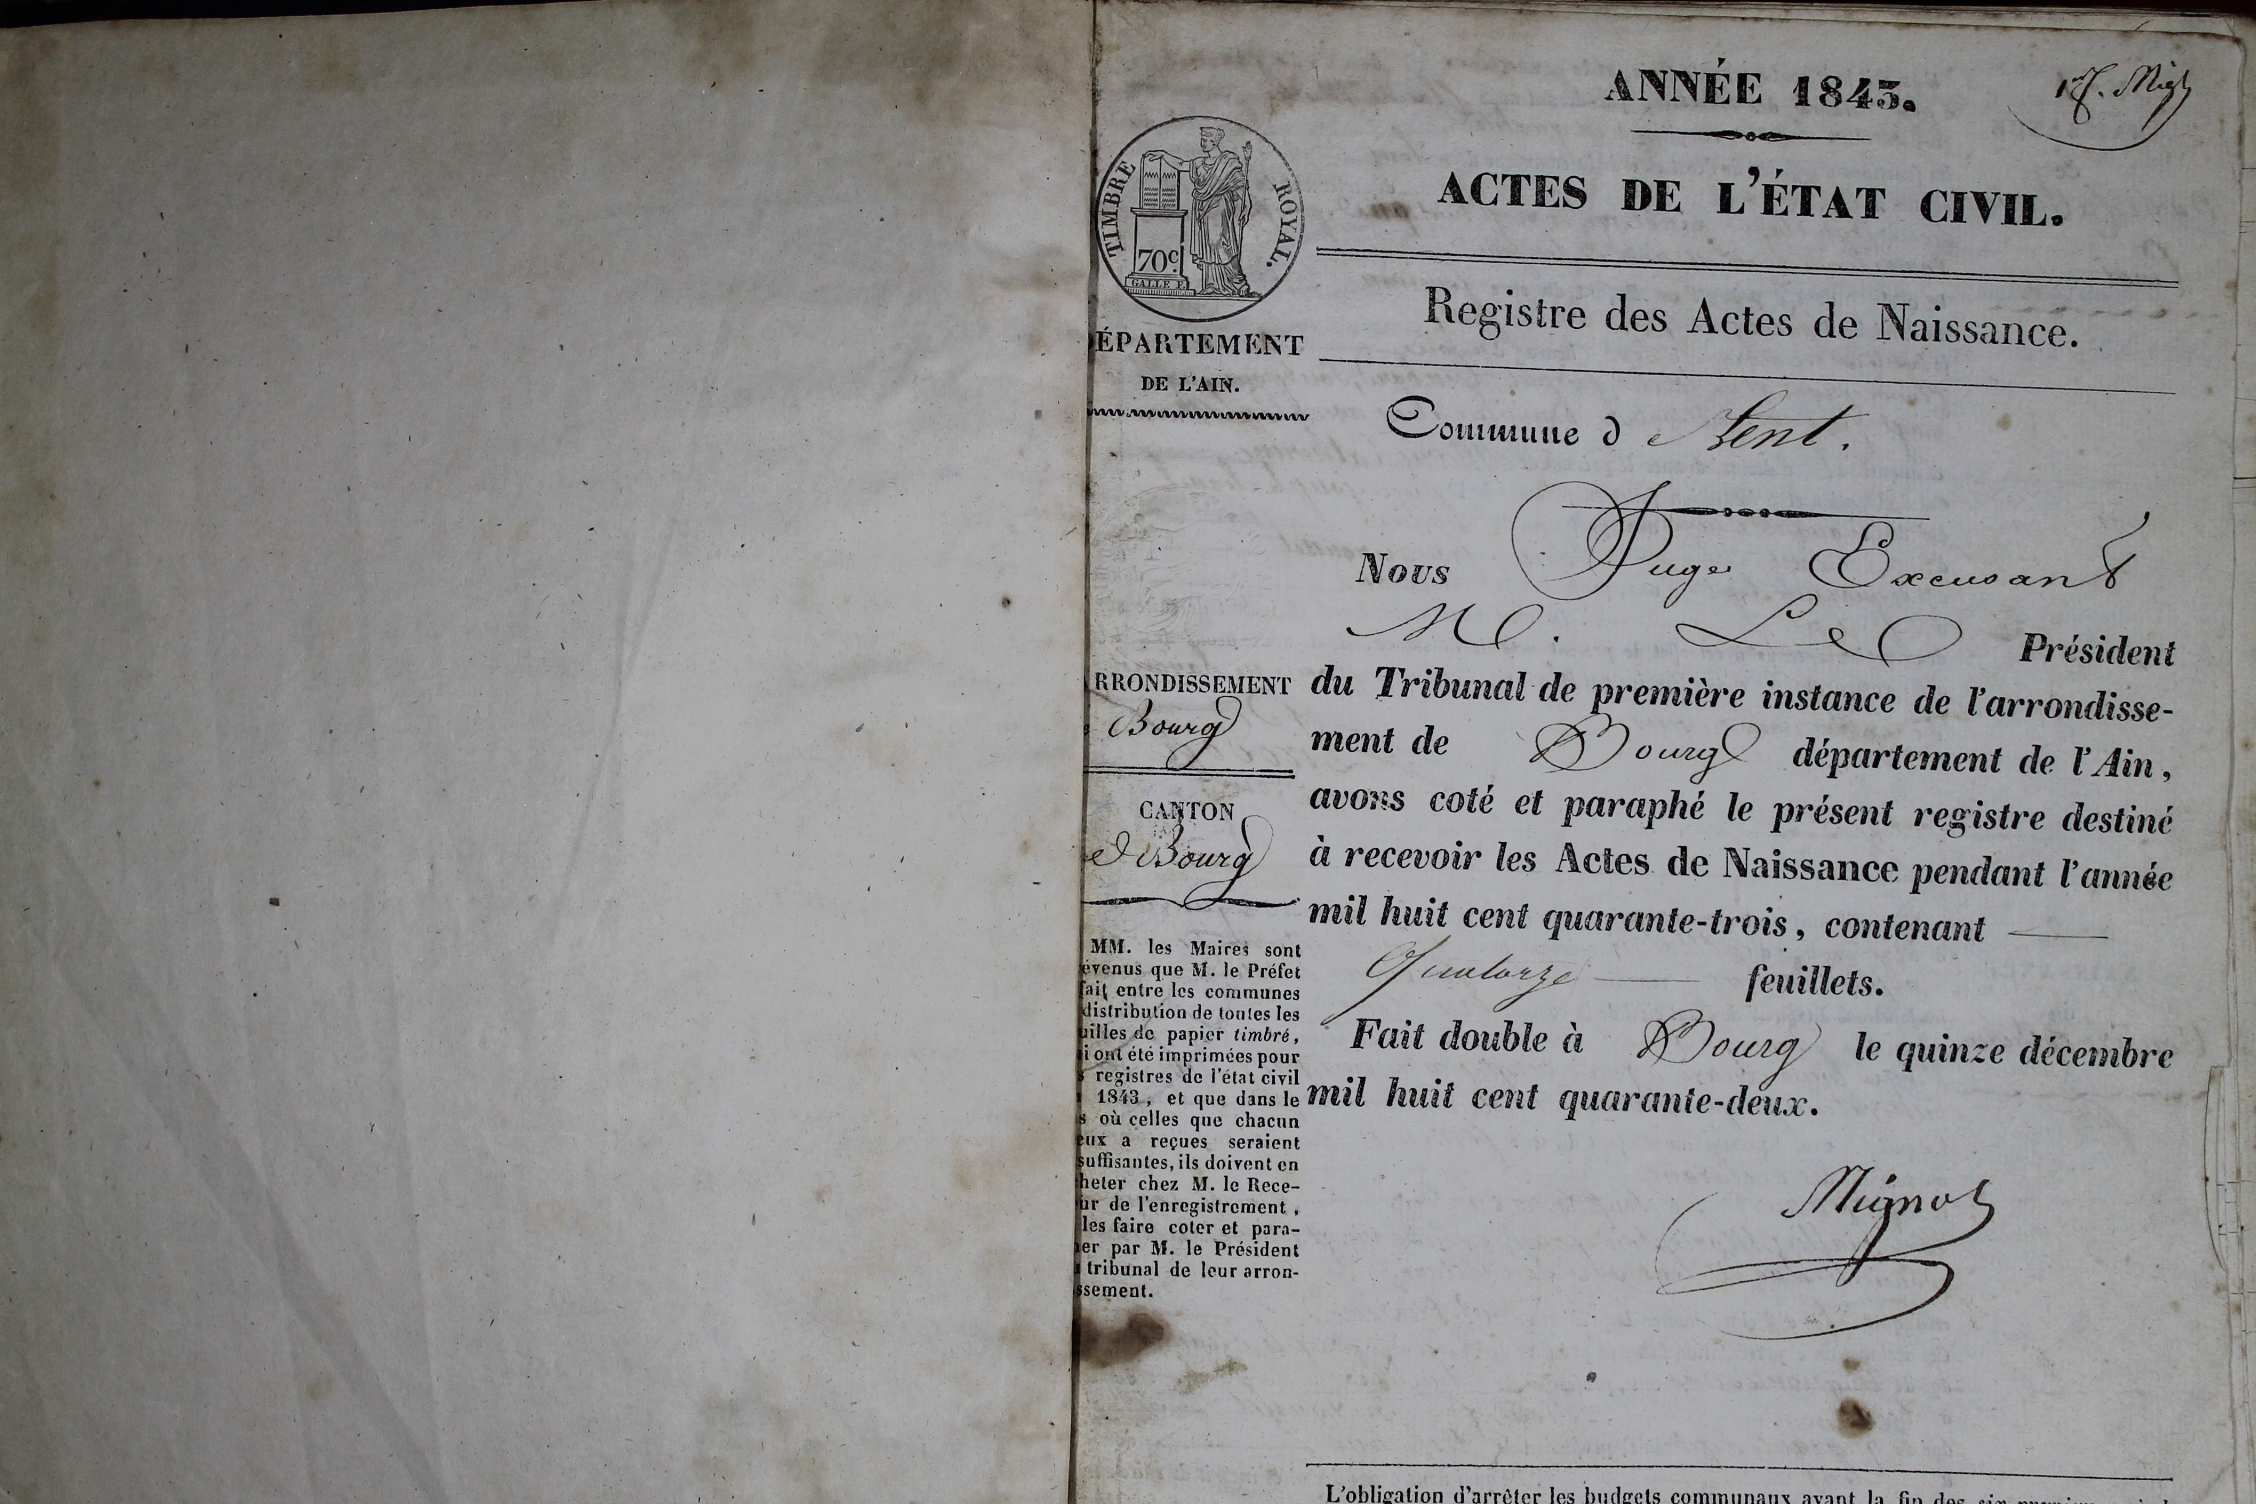 ANNÉE 1843.
ACTES DE L'ÉTAT CIVIL.
TIMBRE ROYAL.
70c.
GALLE F.
Registre des Actes de Naissance.
ÉPARTEMENT
DE L'AIN.
Commune d
Nous Juge Excusant
M. Le Président
RRONDISSEMENT
Bourg
du Tribunal de première instance de l'arrondisse-
ment de Bourg département de l'Ain,
CANTON
de Bourg
avons coté et paraphé le présent registre destiné
à recevoir les Actes de Naissance pendant l'année
mil huit cent quarante-trois, contenant
feuillets.
Fait double à Bourg le quinze décembre
mil huit cent quarante-deux.
Mignot
MM. les Maires sont
évenus que M. le Préfet
fait entre les communes
distribution de toutes les
uilles de papier timbré,
i ont été imprimées pour
s registres de l'état civil
1843, et que dans le
s où celles que chacun
eux a reçues seraient
suffisantes, ils doivent en
heter chez M. le Rece-
ur de l'enregistrement,
les faire coter et para-
er par M. le Président
tribunal de leur arron-
ssement.
L'obligation d'arrêter les budgets communaux avant la fin des six